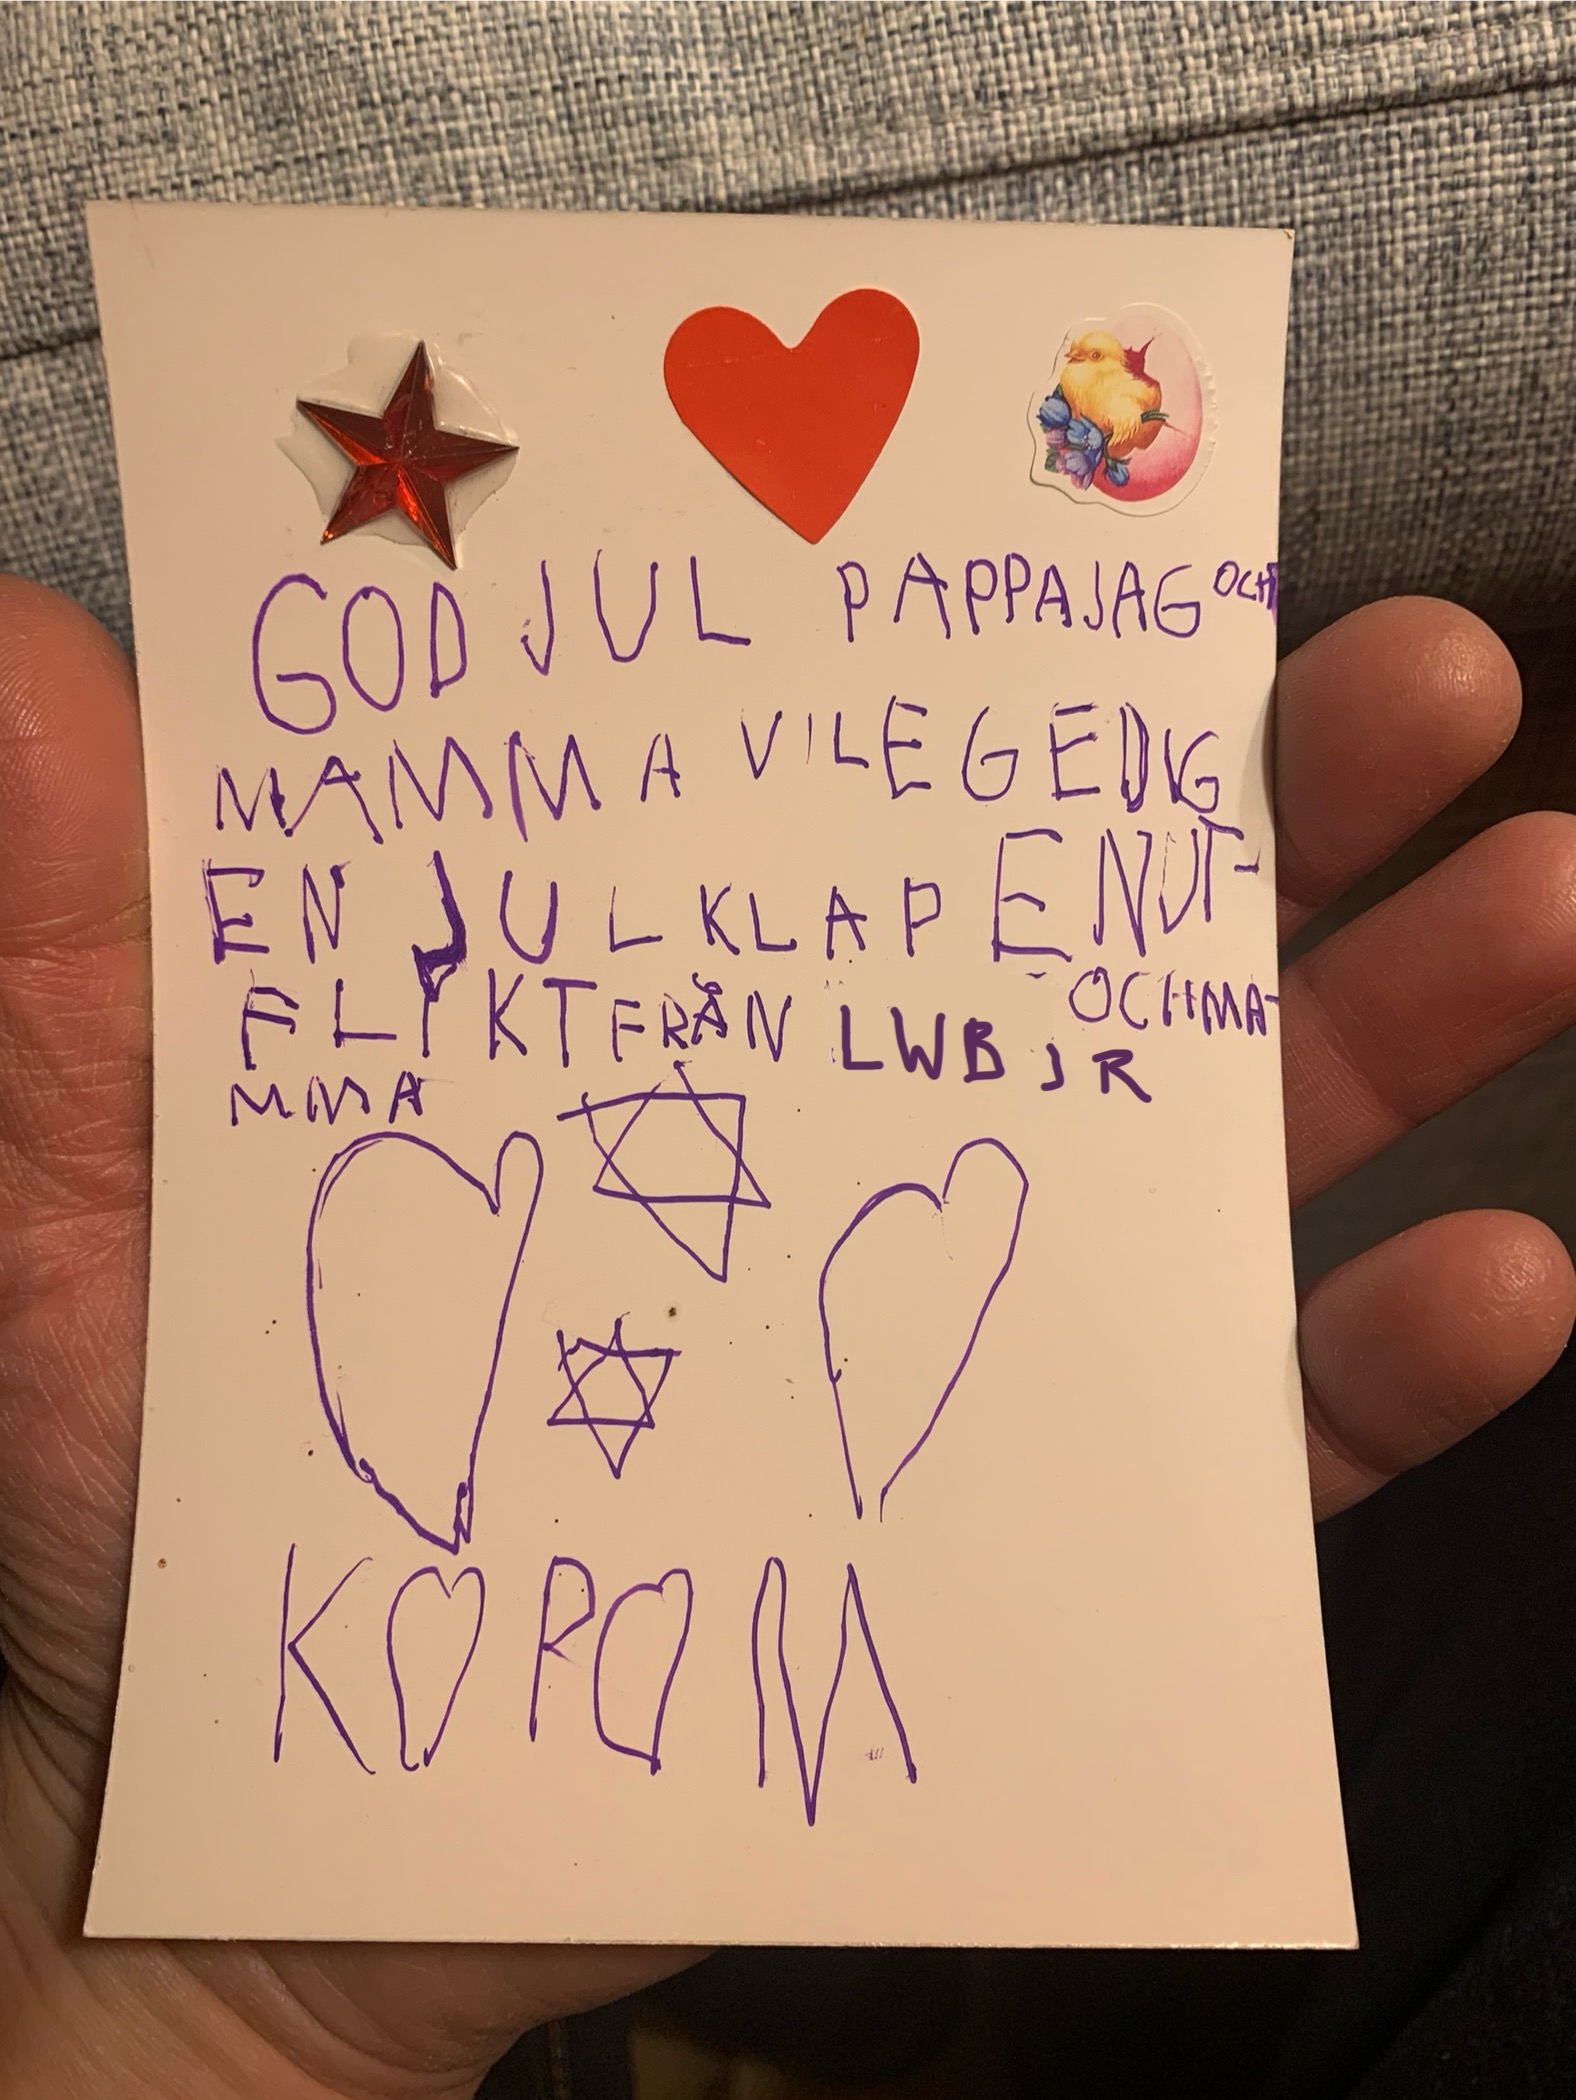 GOD JUL PAPPA JAG OCH
MAMMA VILE GE DIG
EN JULKLAP EN UT-
FLYKT FRÅN LWB JR OCH MA-
MMA
KOROM